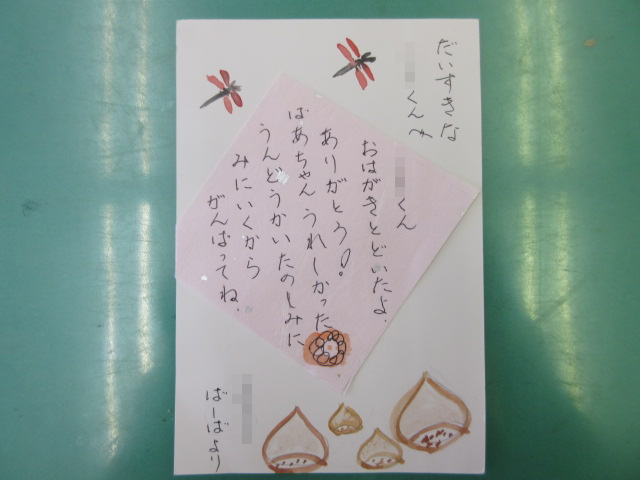 だいすきな
くんへ
くん
おはがきとどいたよ.
ありがとう!
ばあちゃんうれしかった
うんどうかいたのしみに
みにいくから
がんばってね.
ばーばより